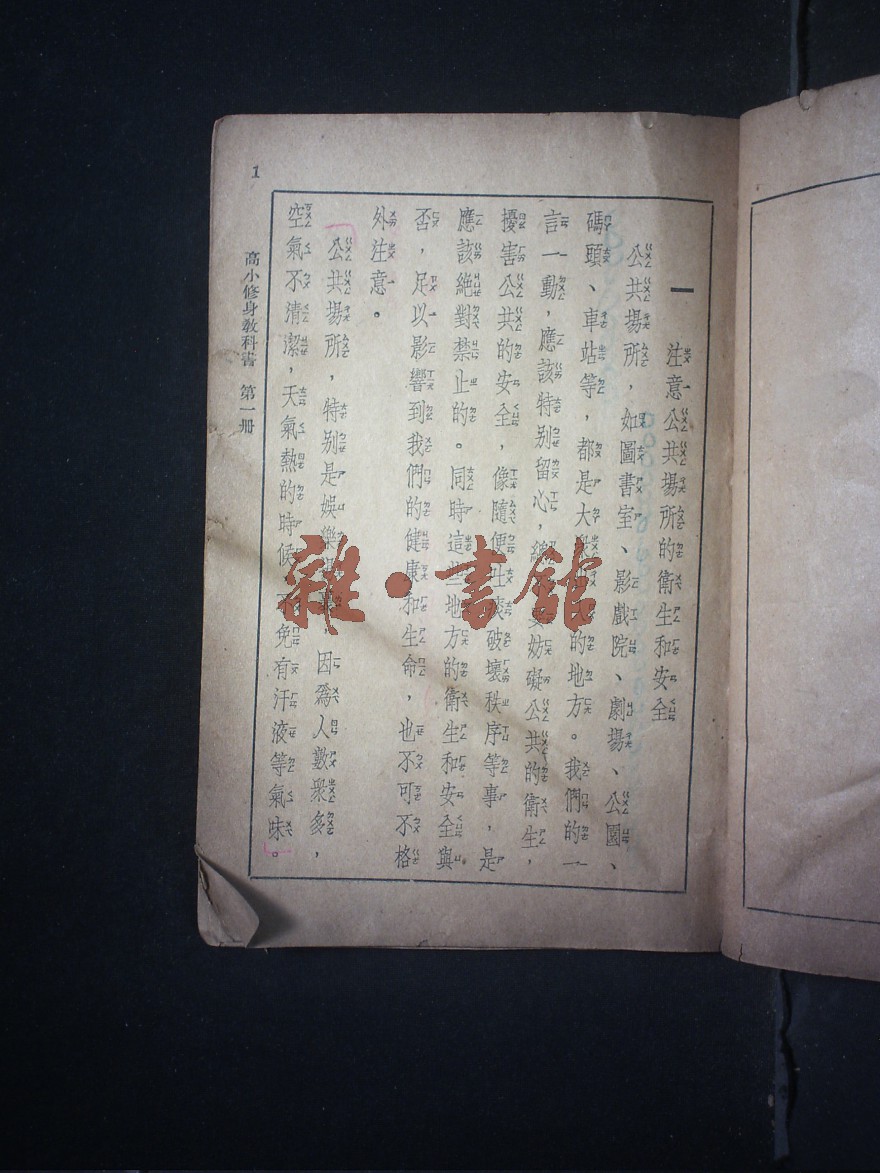 一　注意公共場所的衛生和安全
公共場所，如圖書室、影戲院、劇場、公園、
碼頭、車站等，都是大衆的地方。我們的一
言一動，應該特别留心，妨礙公共的衛生，
擾害公共的安全，像隨便破壞秩序等事，是
應該絕對禁止的。同時這些地方的衛生和安全與
否，足以影響到我們的健康和生命，也不可不格
外注意。
公共場所，特别是娛樂因爲人數衆多，
空氣不清潔，天氣熱的時候，不免有汗液等氣味。
高小修身教科書　第一册
1
雜·書館